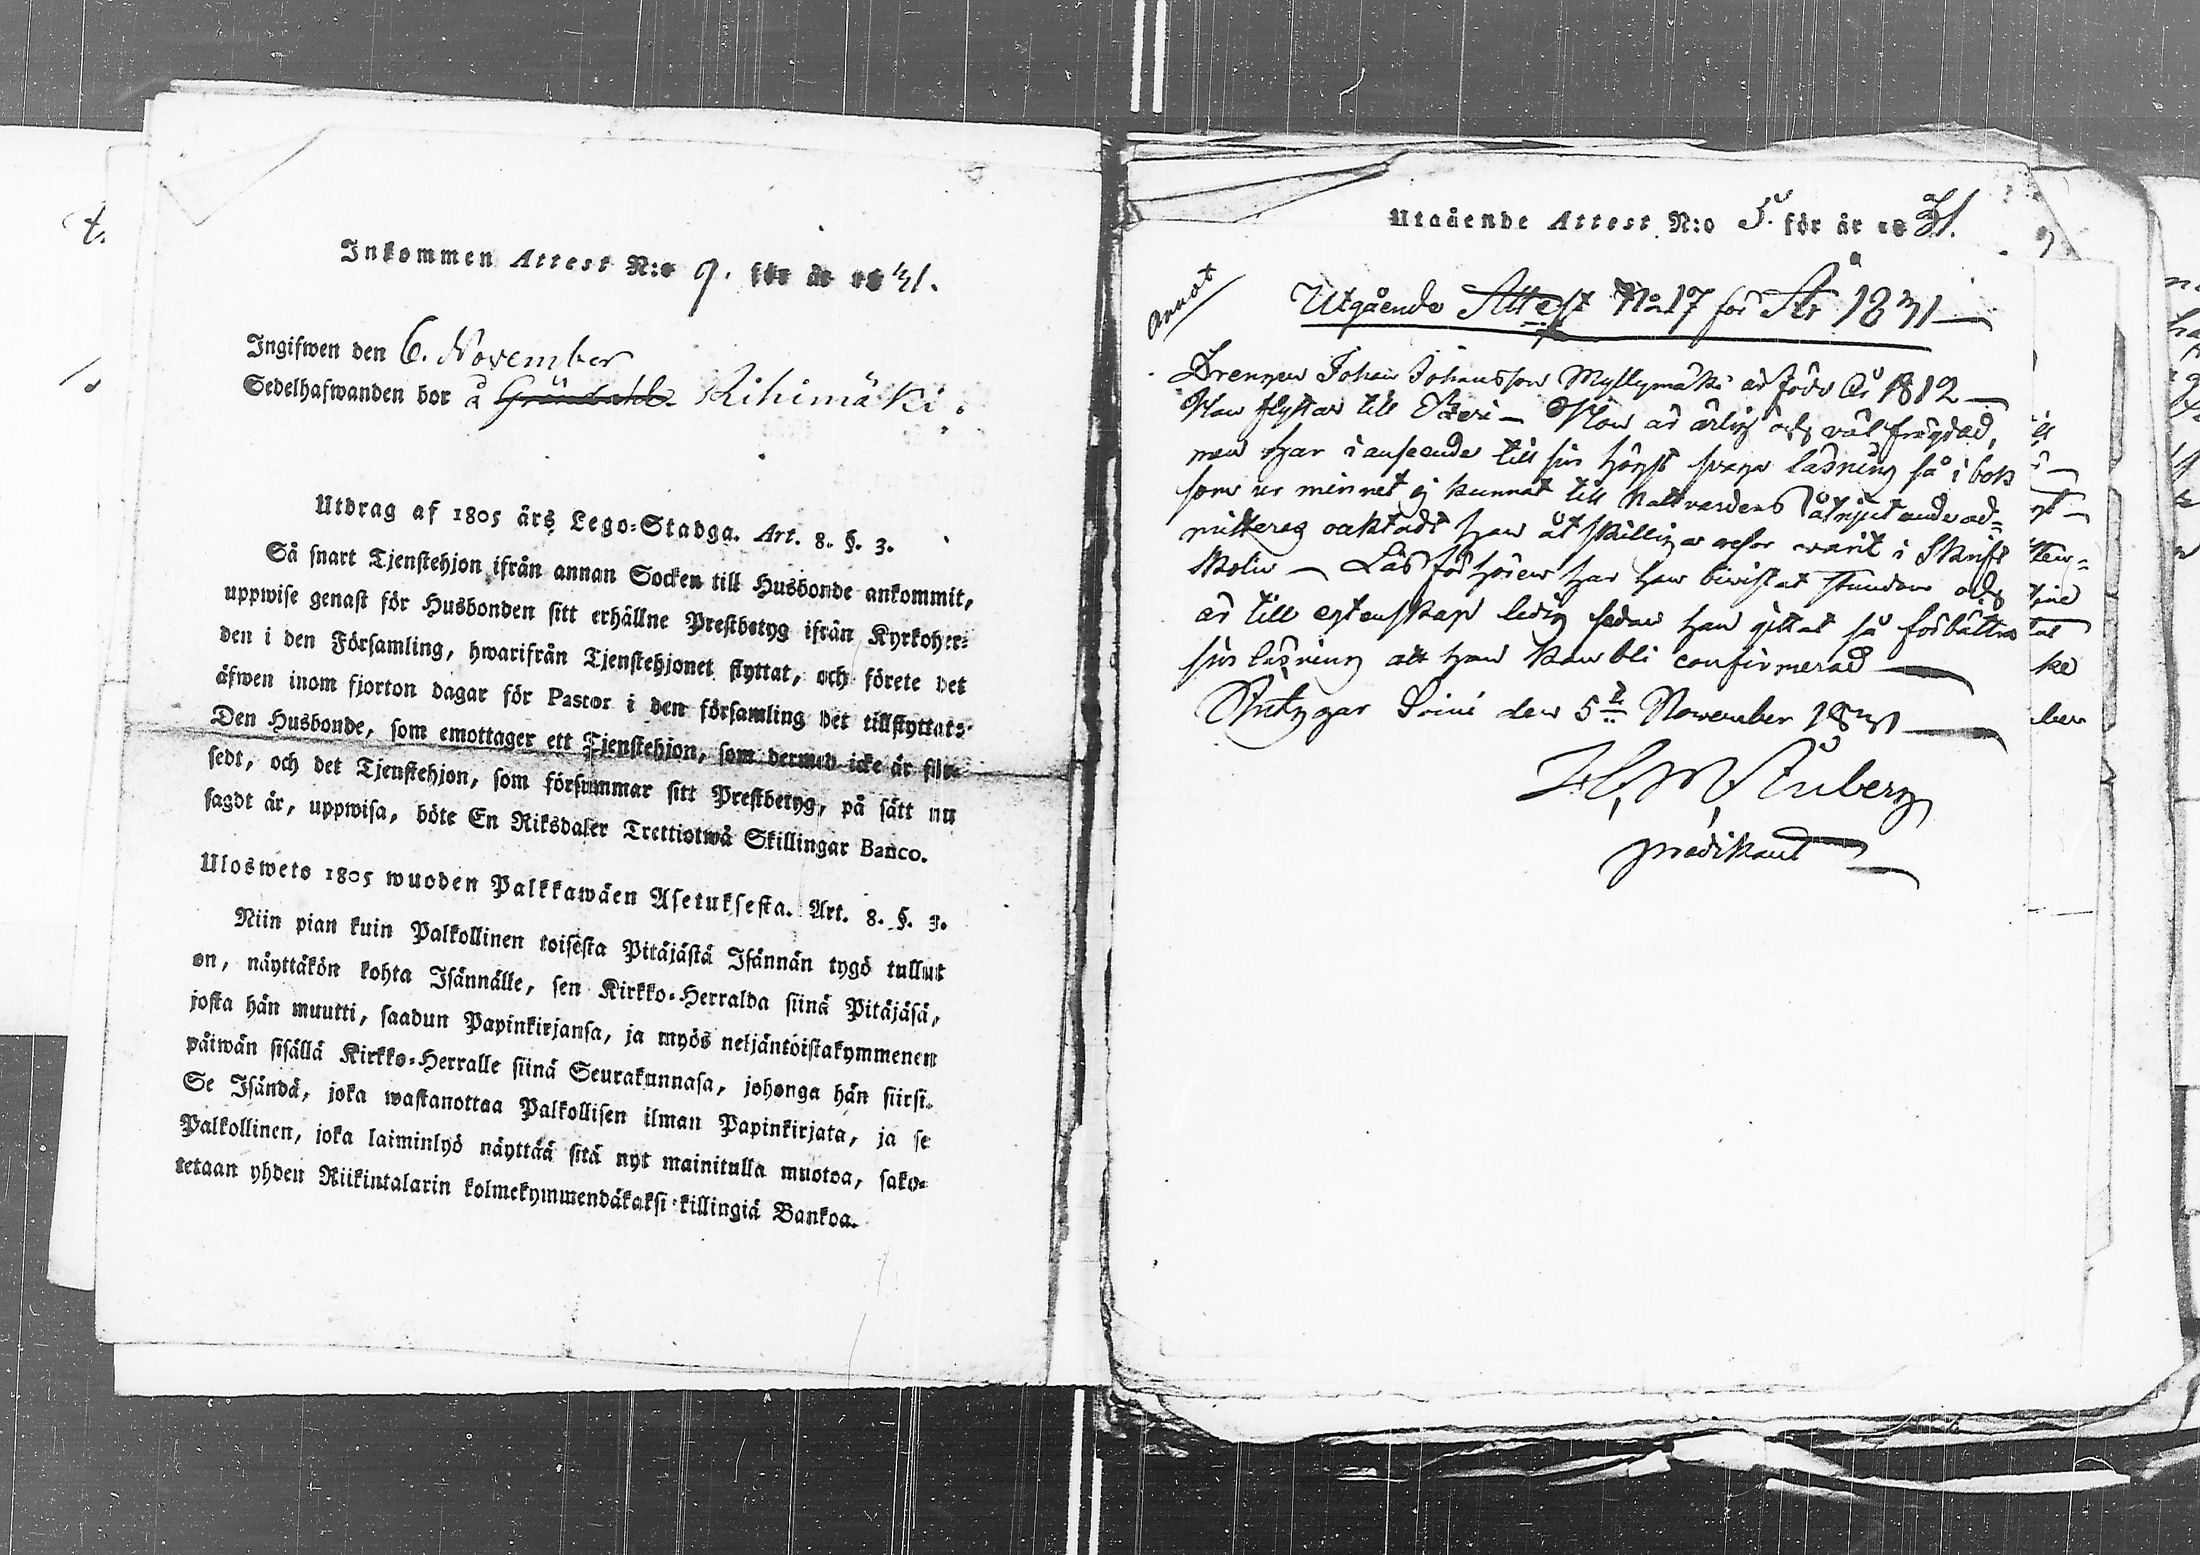 Inkommen Attest N:o 9. för år 18 31.
Ingifwen den 6. November
Sedelhafwanden bor å Gröndahl Rihimäki.
Utdrag af 1805 års Lego-Stadga. Art. 8. §. 3.
Så snart Tjenstehjon ifrån annan Socken till Husbonde ankommit,
uppwise genast för Husbonden sitt erhållne Prestbetyg ifrån Kyrkoher-
den i den Församling, hwarifrån Tjenstehjonet flyttat, och förete det
äfwen inom fjorton dagar för Pastor i den församling det tillflyttat.
Den Husbonde, som emottager ett Tjenstehjon, som dermed icke är för-
sedt, och det Tjenstehjon, som försummar sitt Prestbetyg, på sätt nu
sagdt är, uppwisa, böte En Riksdaler Trettiotwå Skillingar Banco.
Ulosweto 1805 wuoden Palkkawäen Asetuksesta. Art. 8. §. 3.
Niin pian kuin Palkollinen toisesta Pitäjästä Isännän tygö tullut
on, näyttäkön kohta Isännälle, sen Kirkko-Herralda siinä Pitäjäsä,
josta hän muutti, saadun Papinkirjansa, ja myös neljäntoistakymmenen
päiwän sisällä Kirkko-Herralle siinä Seurakunnasa, johonga hän siirsi.
Se Isändä, joka wastanottaa Palkollisen ilman Papinkirjata, ja se
Palkollinen, joka laiminlyö näyttää sitä nyt mainitulla muotoa, sako-
tetaan yhden Riikintalarin kolmekymmendäkaksi killingiä Bankoa.
Utgående Attest N:o 5. för år 18 31.
Utgående Attest No 17 för År 1831
Drengen Johan Johansson Myllymäki är född År 1812
Han flyttar till Etseri – Han är ärlig och väl frägdad,
men har i anseende till sin högst swaga läsning så i bok
som ur minnet ej kunnat till Nattvardens åtnjutande ad=
mitteras oaktadt han åtskillige resor warit i Skrift
Skolin – Läsförhören har han biwistat stundom och
är till egtenskap ledig sedan han gittat så förbättra
sin läsning att han kan bli confirmerad
Intygar Soini den 5te November 1831
H. M. Stuberg
prædikant